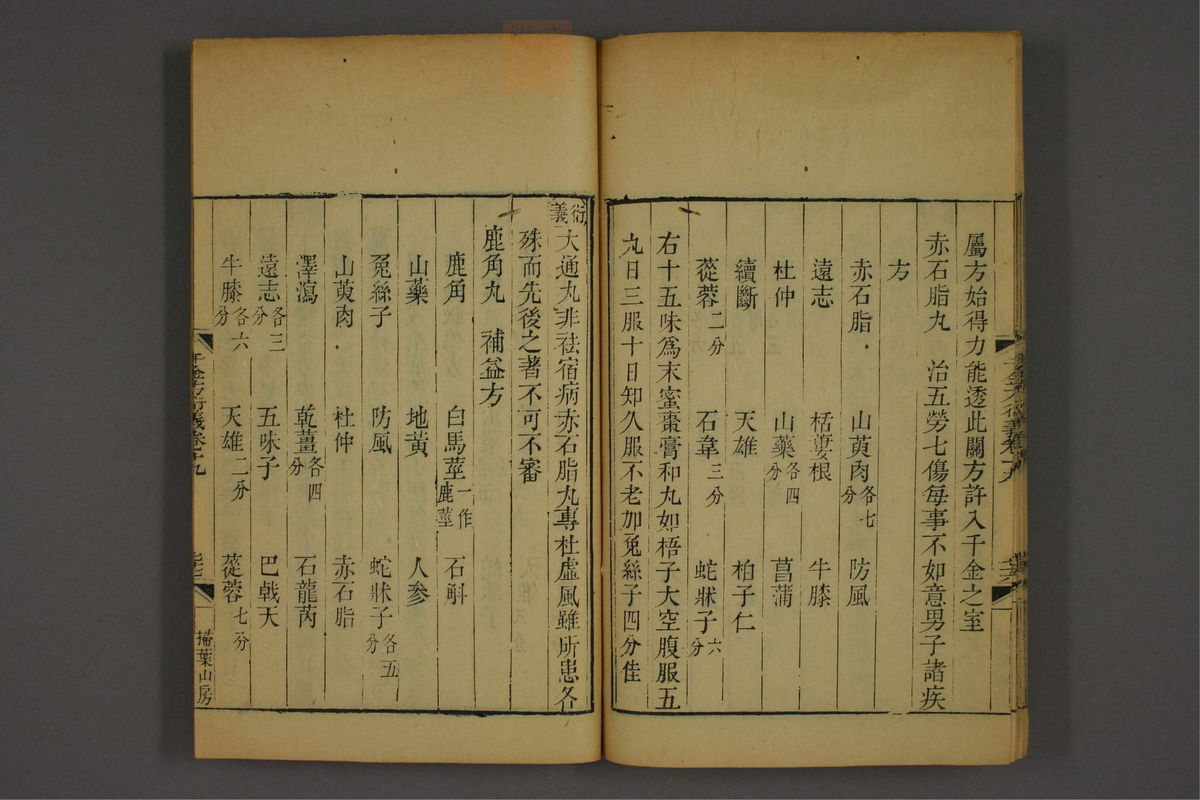 屬方始得力能透此關方許入千金之室
赤石脂丸　治五勞七傷每事不如意男子諸疾
方
赤石脂　山萸肉各七分　防風
遠志　栝蔞根　牛膝
杜仲　山藥各四分　菖蒲
續斷　天雄　柏子仁
蓯蓉二分　石韋三分　蛇牀子六分
右十五味爲末蜜棗膏和丸如梧子大空腹服五
丸日三服十日知久服不老加菟絲子四分佳
衍義大通丸非祛宿病赤石脂丸專杜虛風雖所患各
殊而先後之著不可不審
鹿角丸　補益方
鹿角　白馬莖一作鹿莖　石斛
山藥　地黃　人參
菟絲子　防風　蛇牀子各五分
山萸肉　杜仲　赤石脂
澤瀉　乾薑各四分　石龍芮
遠志各三分　五味子　巴戟天
牛膝各六分　天雄二分　蓯蓉七分
千金方衍義卷十九
掃葉山房